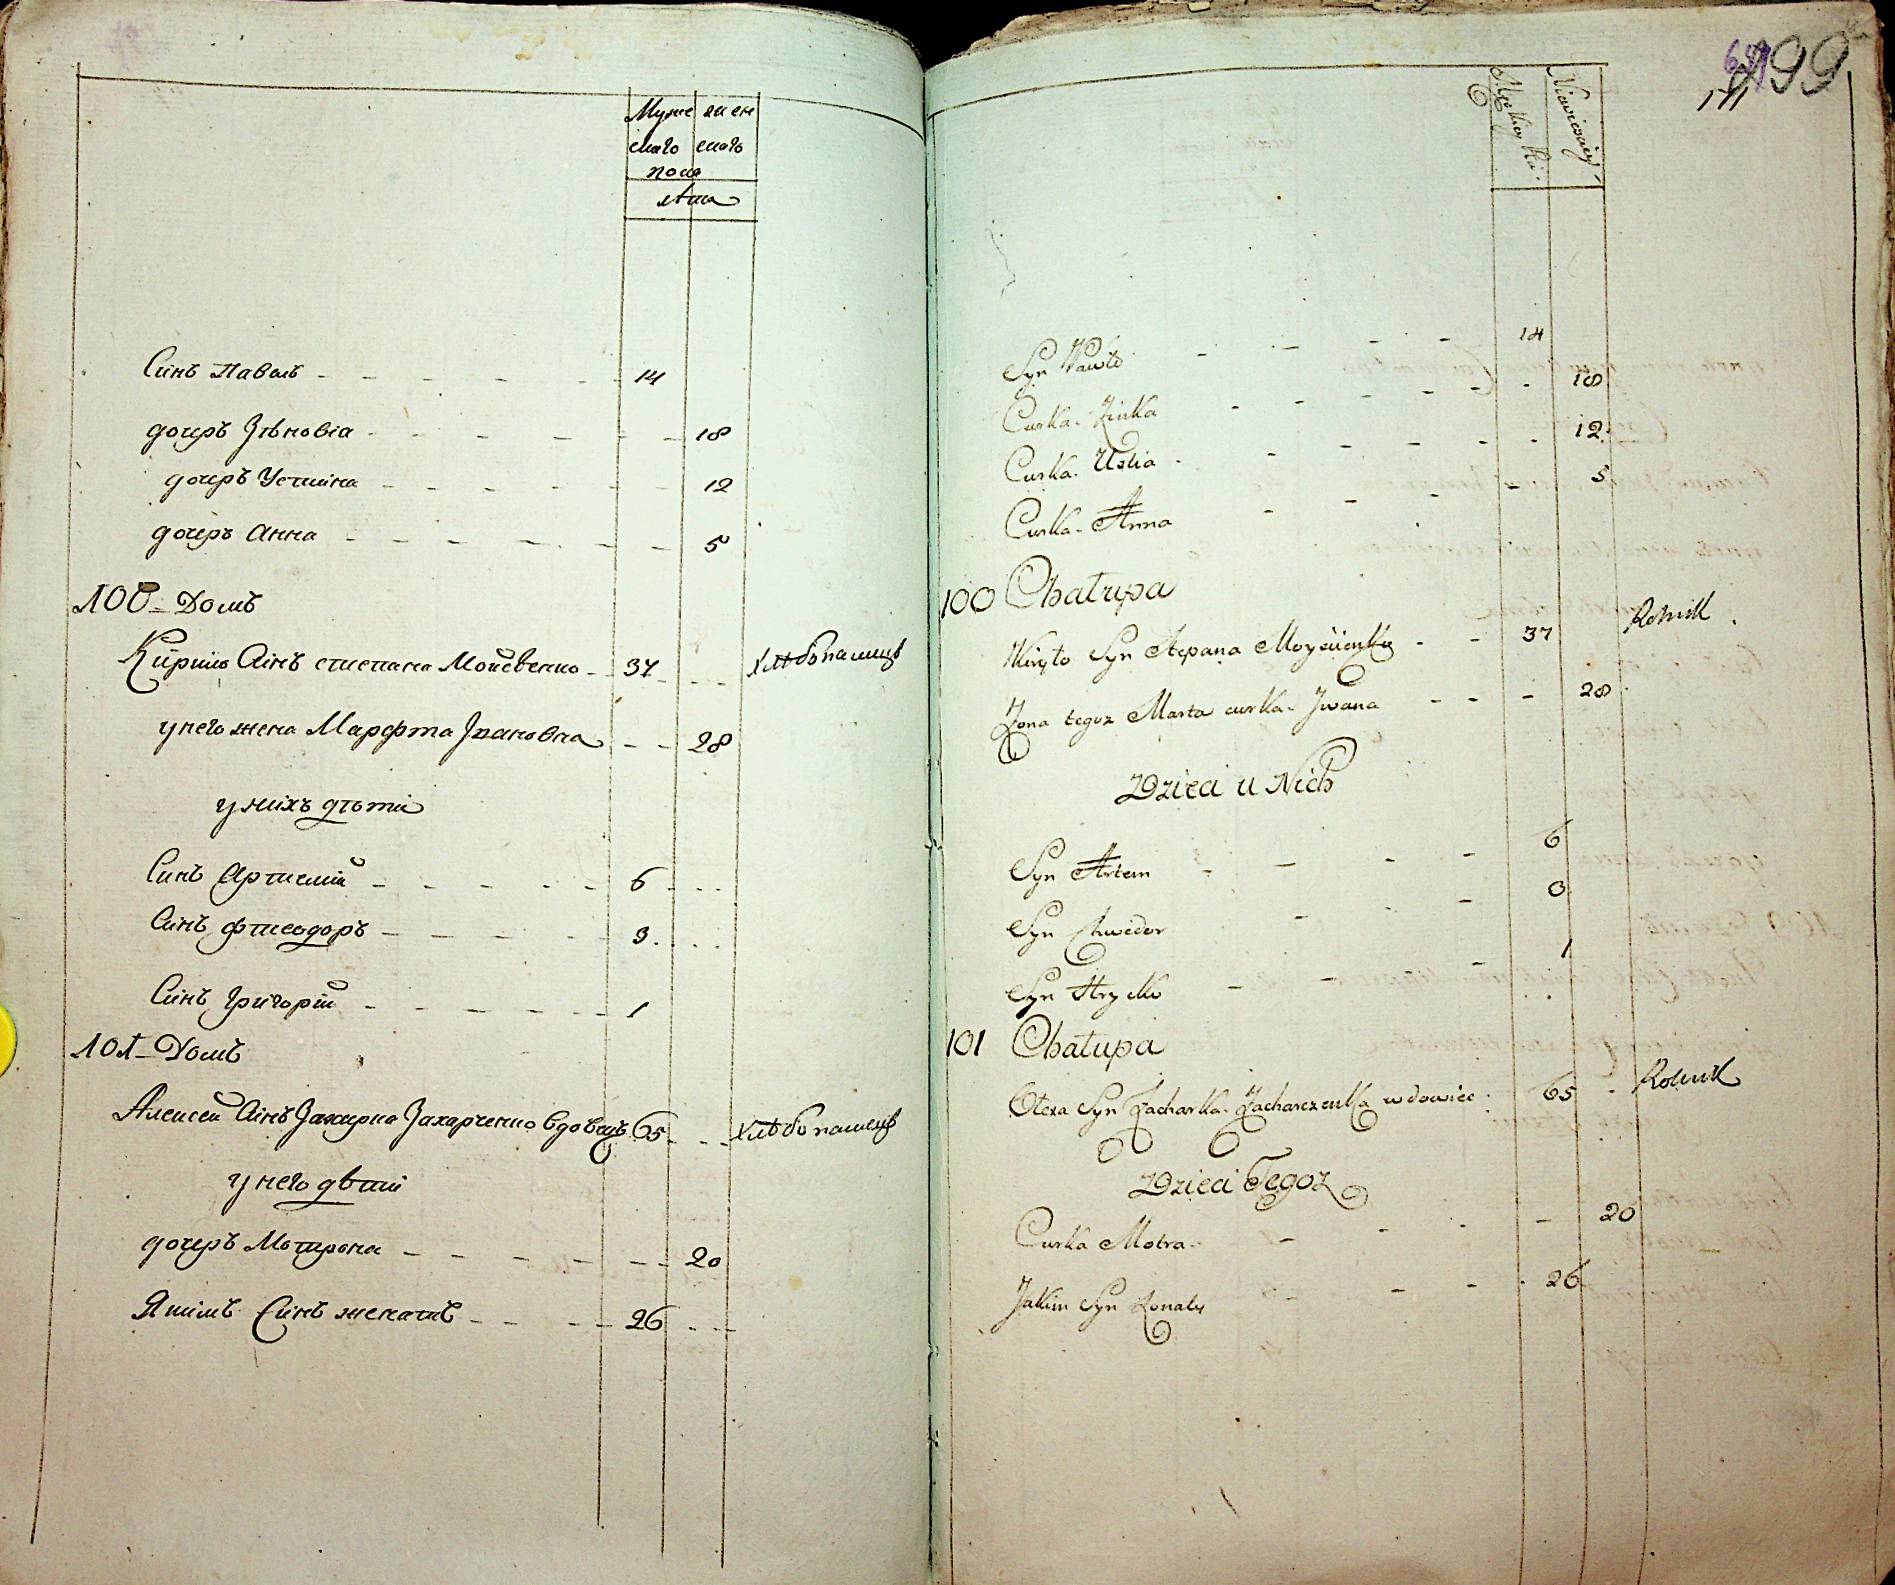 Муже жен
скаго скаго
пола
лѣта
Синъ Павелъ 14
дочеръ Зѣновіа 18
дочеръ Устина 12
дочеръ Анна 5
100 Домъ
Кирило Синъ степана Мойсѣенко 37 Хлѣбопашецъ
у него жена Марфта Івановна 28
у нихъ дѣти
Синъ Артемій 6
Синъ фтеодоръ 3
Синъ Григорій 1
101 Домъ
Алексей Синъ Захарка Захарченко вдовецъ 65 хлѣбопашецъ
у него дѣти
дочеръ Мотрона 20
Якимъ Синъ женатъ 26
199
Syn Pawło 14
Curka Zinka 18
Curka Ustia 12
Curka Anna 5
100 Chałupa
Kiryło Syn Stepana Moysiienka 37 Rolnik
Zona tegoz Marta curka Jwana 28
Dzieci u Nich
Syn Artem 6
Syn Chwedor 3
Syn Hrycko 1
101 Chałupa
Olexa Syn Zacharka Zacharczenka wdowiec 65 Rolnik
Dzieci Tegoz
Curka Motra 20
Jakim Syn Zonaty 26